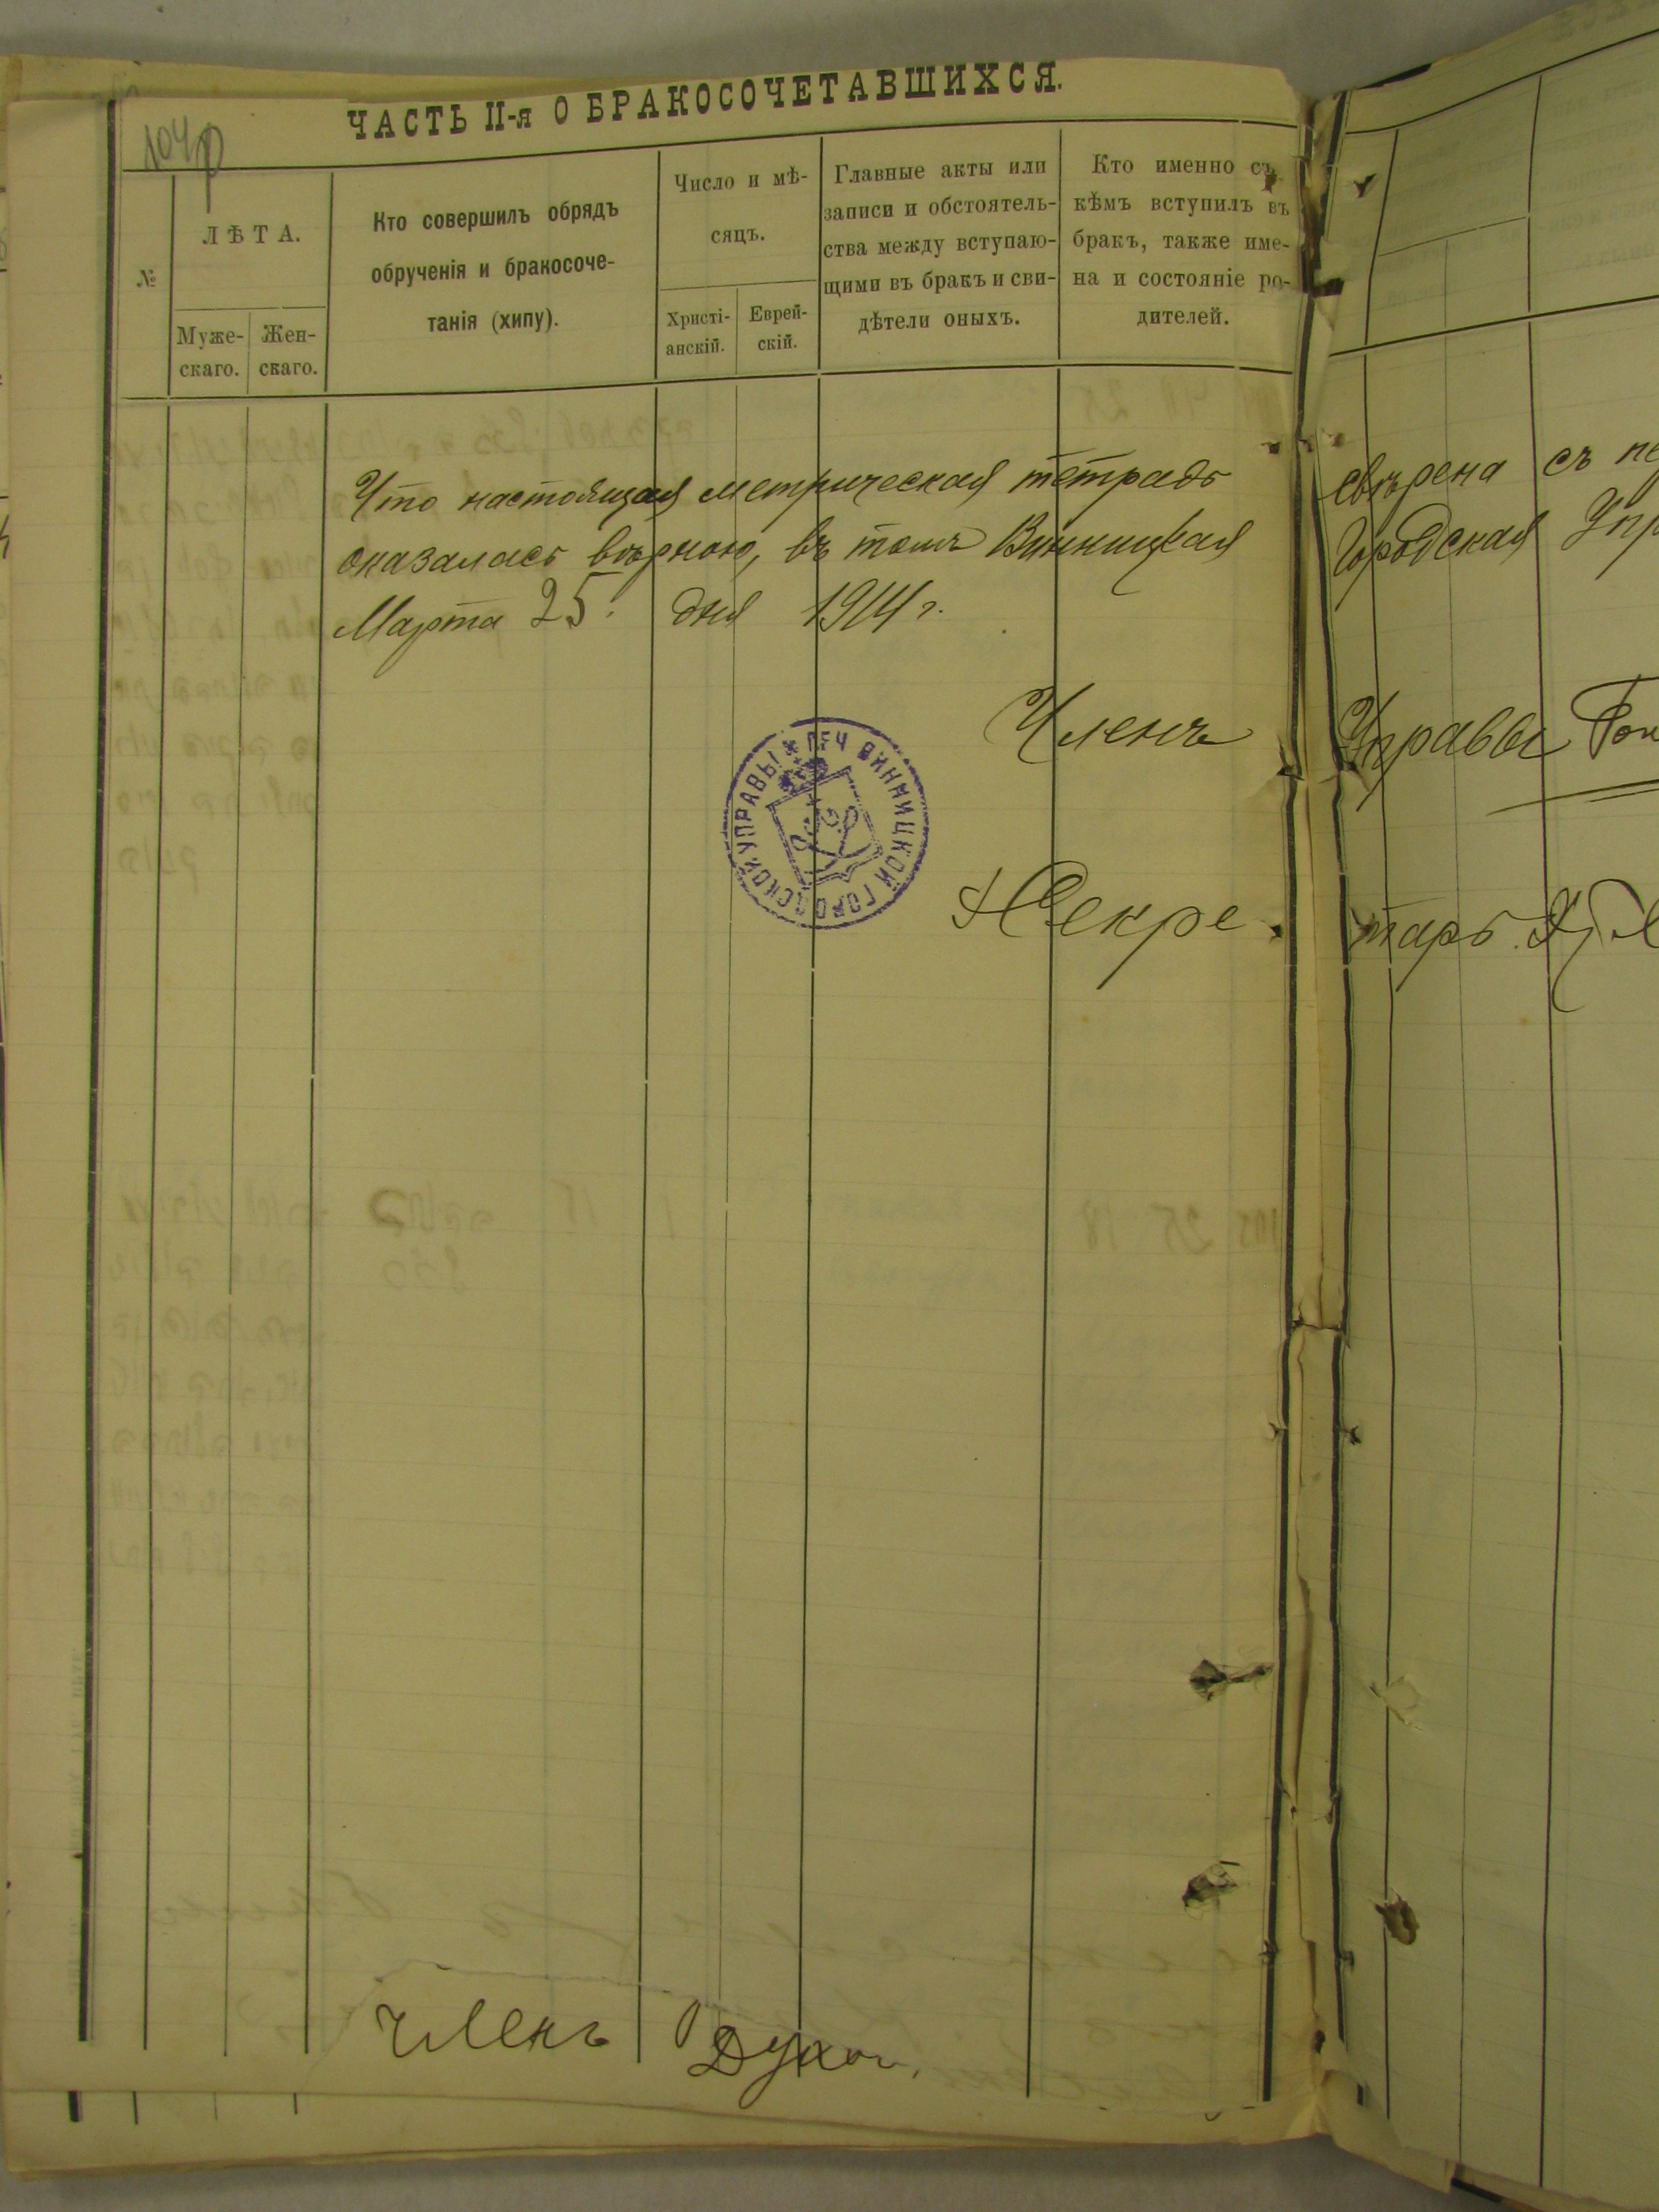 ЧАСТЬ II-я О БРАКОСОЧЕТАВШИХСЯ.
№
ЛѢТА.
Муже-
скаго.
Жен-
скаго.
Кто совершилъ обрядъ
обрученія и бракосоче-
танія (хипу).
Число и мѣ-
сяцъ.
Христі-
анскій.
Еврей-
скій.
Главные акты или
записи и обстоятель-
ства между вступаю-
щими въ бракъ и сви-
дѣтели оныхъ.
Кто именно съ
кѣмъ вступилъ въ
бракъ, также име-
на и состояніе ро-
дителей.
Что настоящая метрическая тетрадь свѣрена съ
оказалась вѣрною, въ томъ Винницкая Городская Упр
Марта 25 дня 1914 г.
Членъ Управы
ПЕЧ ВИННИЦКОЙ ГОРОДСКОЙ УПРАВЫ
Секретарь
Членъ